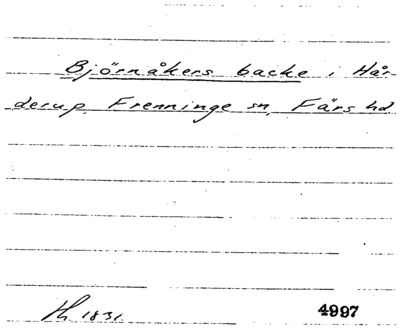 Björnåkers backe i Hår-
derup, Frenninge sn, Färs hd.
1831.
4997